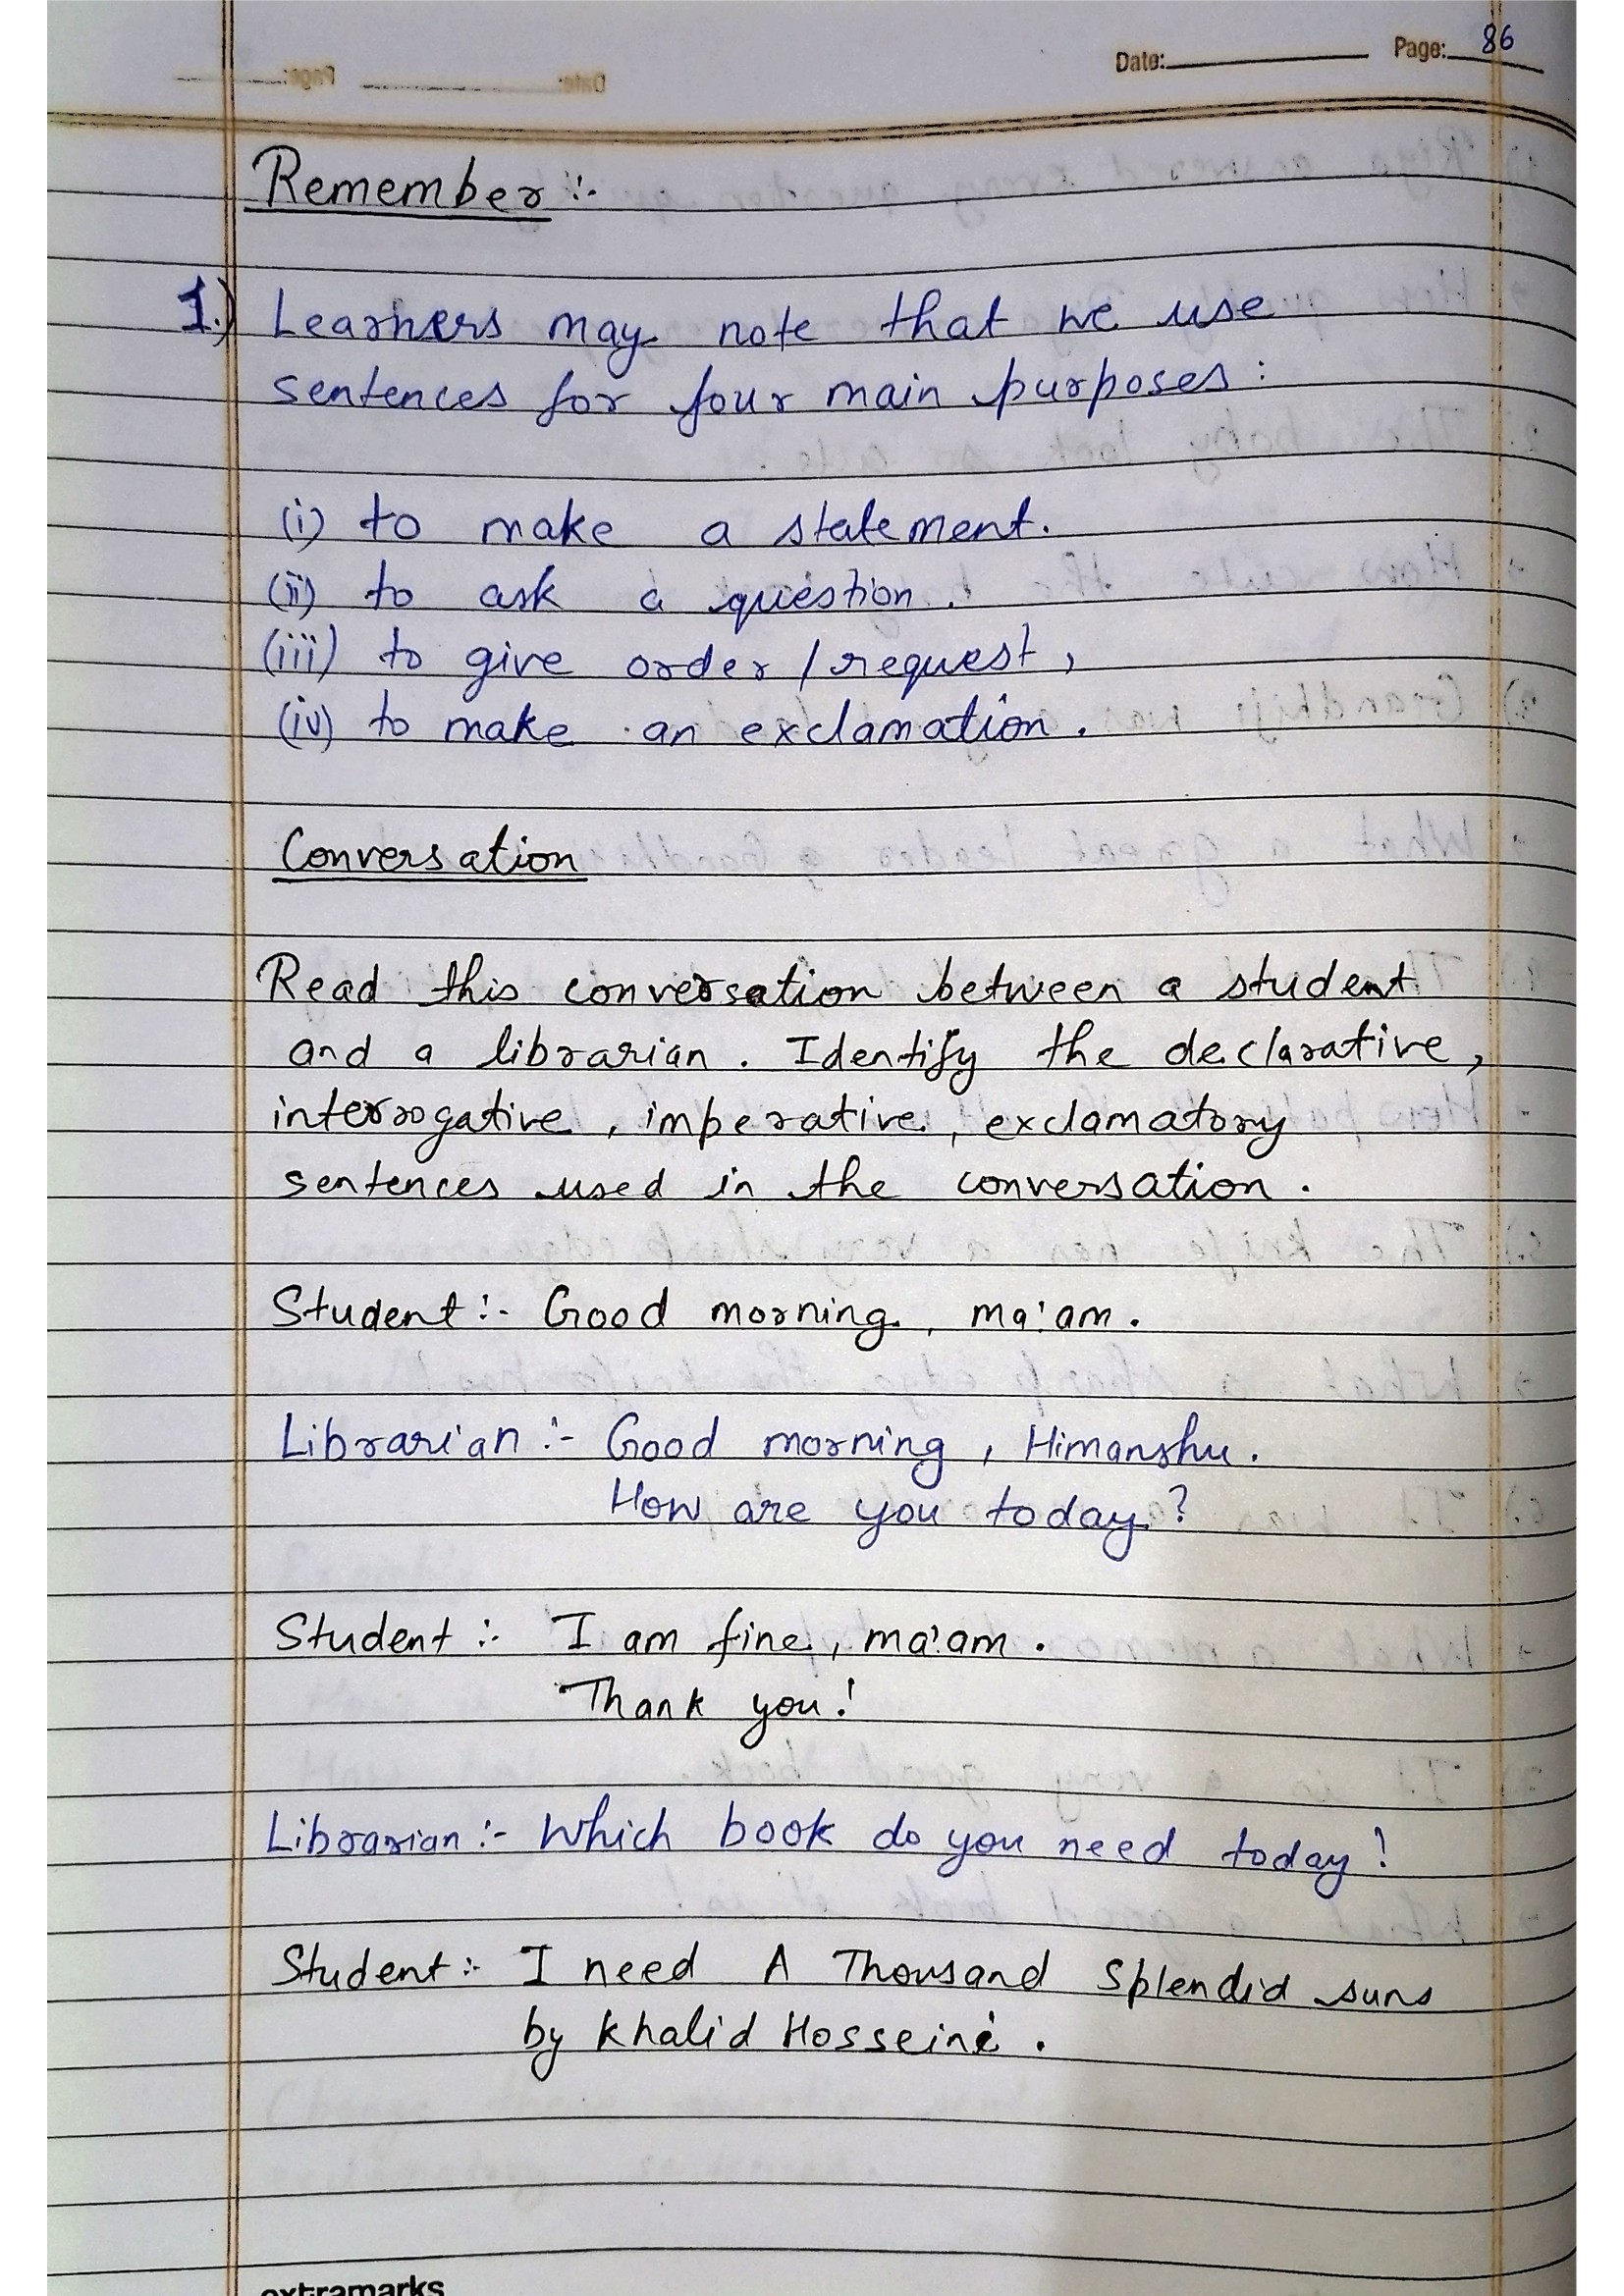 Date: Page: 86
Remember :-
1.) Learners may note that we use
sentences for four main purposes:
(i) to make a statement.
(ii) to ask a question.
(iii) to give order / request,
(iv) to make an exclamation.
Conversation
Read this conversation between a student
and a librarian. Identify the declarative,
interrogative, imperative, exclamatory
sentences used in the conversation.
Student :- Good morning, ma'am.
Librarian :- Good morning, Himanshu.
How are you today?
Student :- I am fine, ma'am.
Thank you!
Librarian :- Which book do you need today!
Student :- I need A Thousand Splendid suns
by Khalid Hosseini.
extramarks